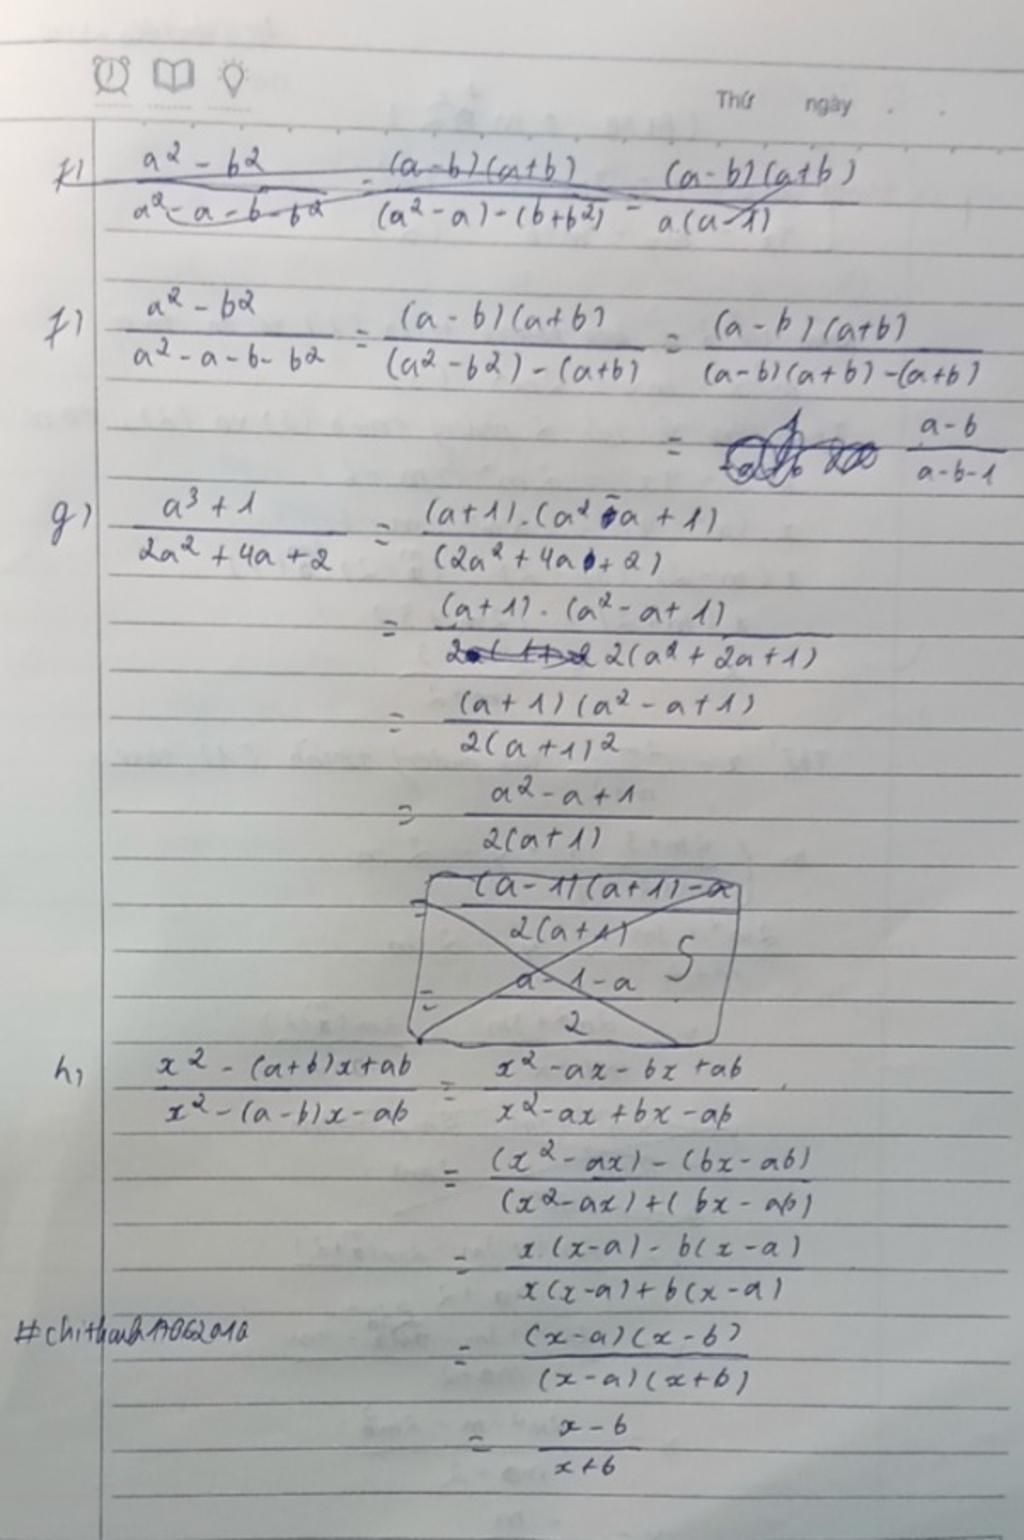 Thứ ngày . .
f) a² - b² / a² - a - b - b² = (a-b)(a+b) / (a² - a) - (b+b²) = (a-b)(a+b) / a.(a-1)
f) a² - b² / a² - a - b - b² = (a-b)(a+b) / (a² - b²) - (a+b) = (a-b)(a+b) / (a-b)(a+b) - (a+b)
= a-b / a-b-1
g) a³ + 1 / 2a² + 4a + 2 = (a+1).(a² - a + 1) / (2a² + 4a + 2)
= (a+1).(a² - a + 1) / 2(a² + 2a + 1)
= (a+1)(a² - a + 1) / 2(a+1)²
= a² - a + 1 / 2(a+1)
= (a-1)(a+1) - a / 2(a+1)
= a - 1 - a / 2 S
h, x² - (a+b)x + ab / x² - (a-b)x - ab = x² - ax - bx + ab / x² - ax + bx - ab
= (x² - ax) - (bx - ab) / (x² - ax) + (bx - ab)
= x.(x-a) - b(x-a) / x(x-a) + b(x-a)
#chithanh17062010
= (x-a)(x-b) / (x-a)(x+b)
= x-b / x+b